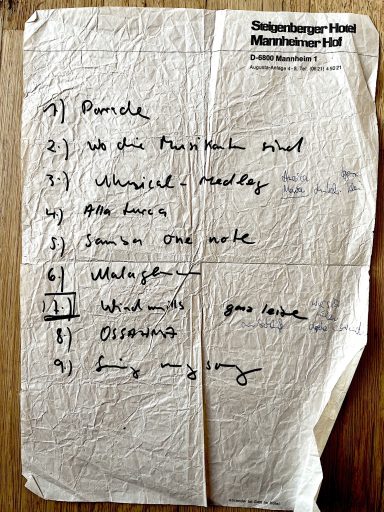 Steigenberger Hotel
Mannheimer Hof
D-6800 Mannheim 1
Augusta-Anlage 4-8, Tel. (0621) 4 50 21
1.) Parade
2.) Wo die Musikanten sind
3.) Musical-Medley
4.) Alla turca
5.) Samba one note
6.) Malaguena
7.) Windmills ganz leise
8.) OSSAMMA
9.) Sing my song